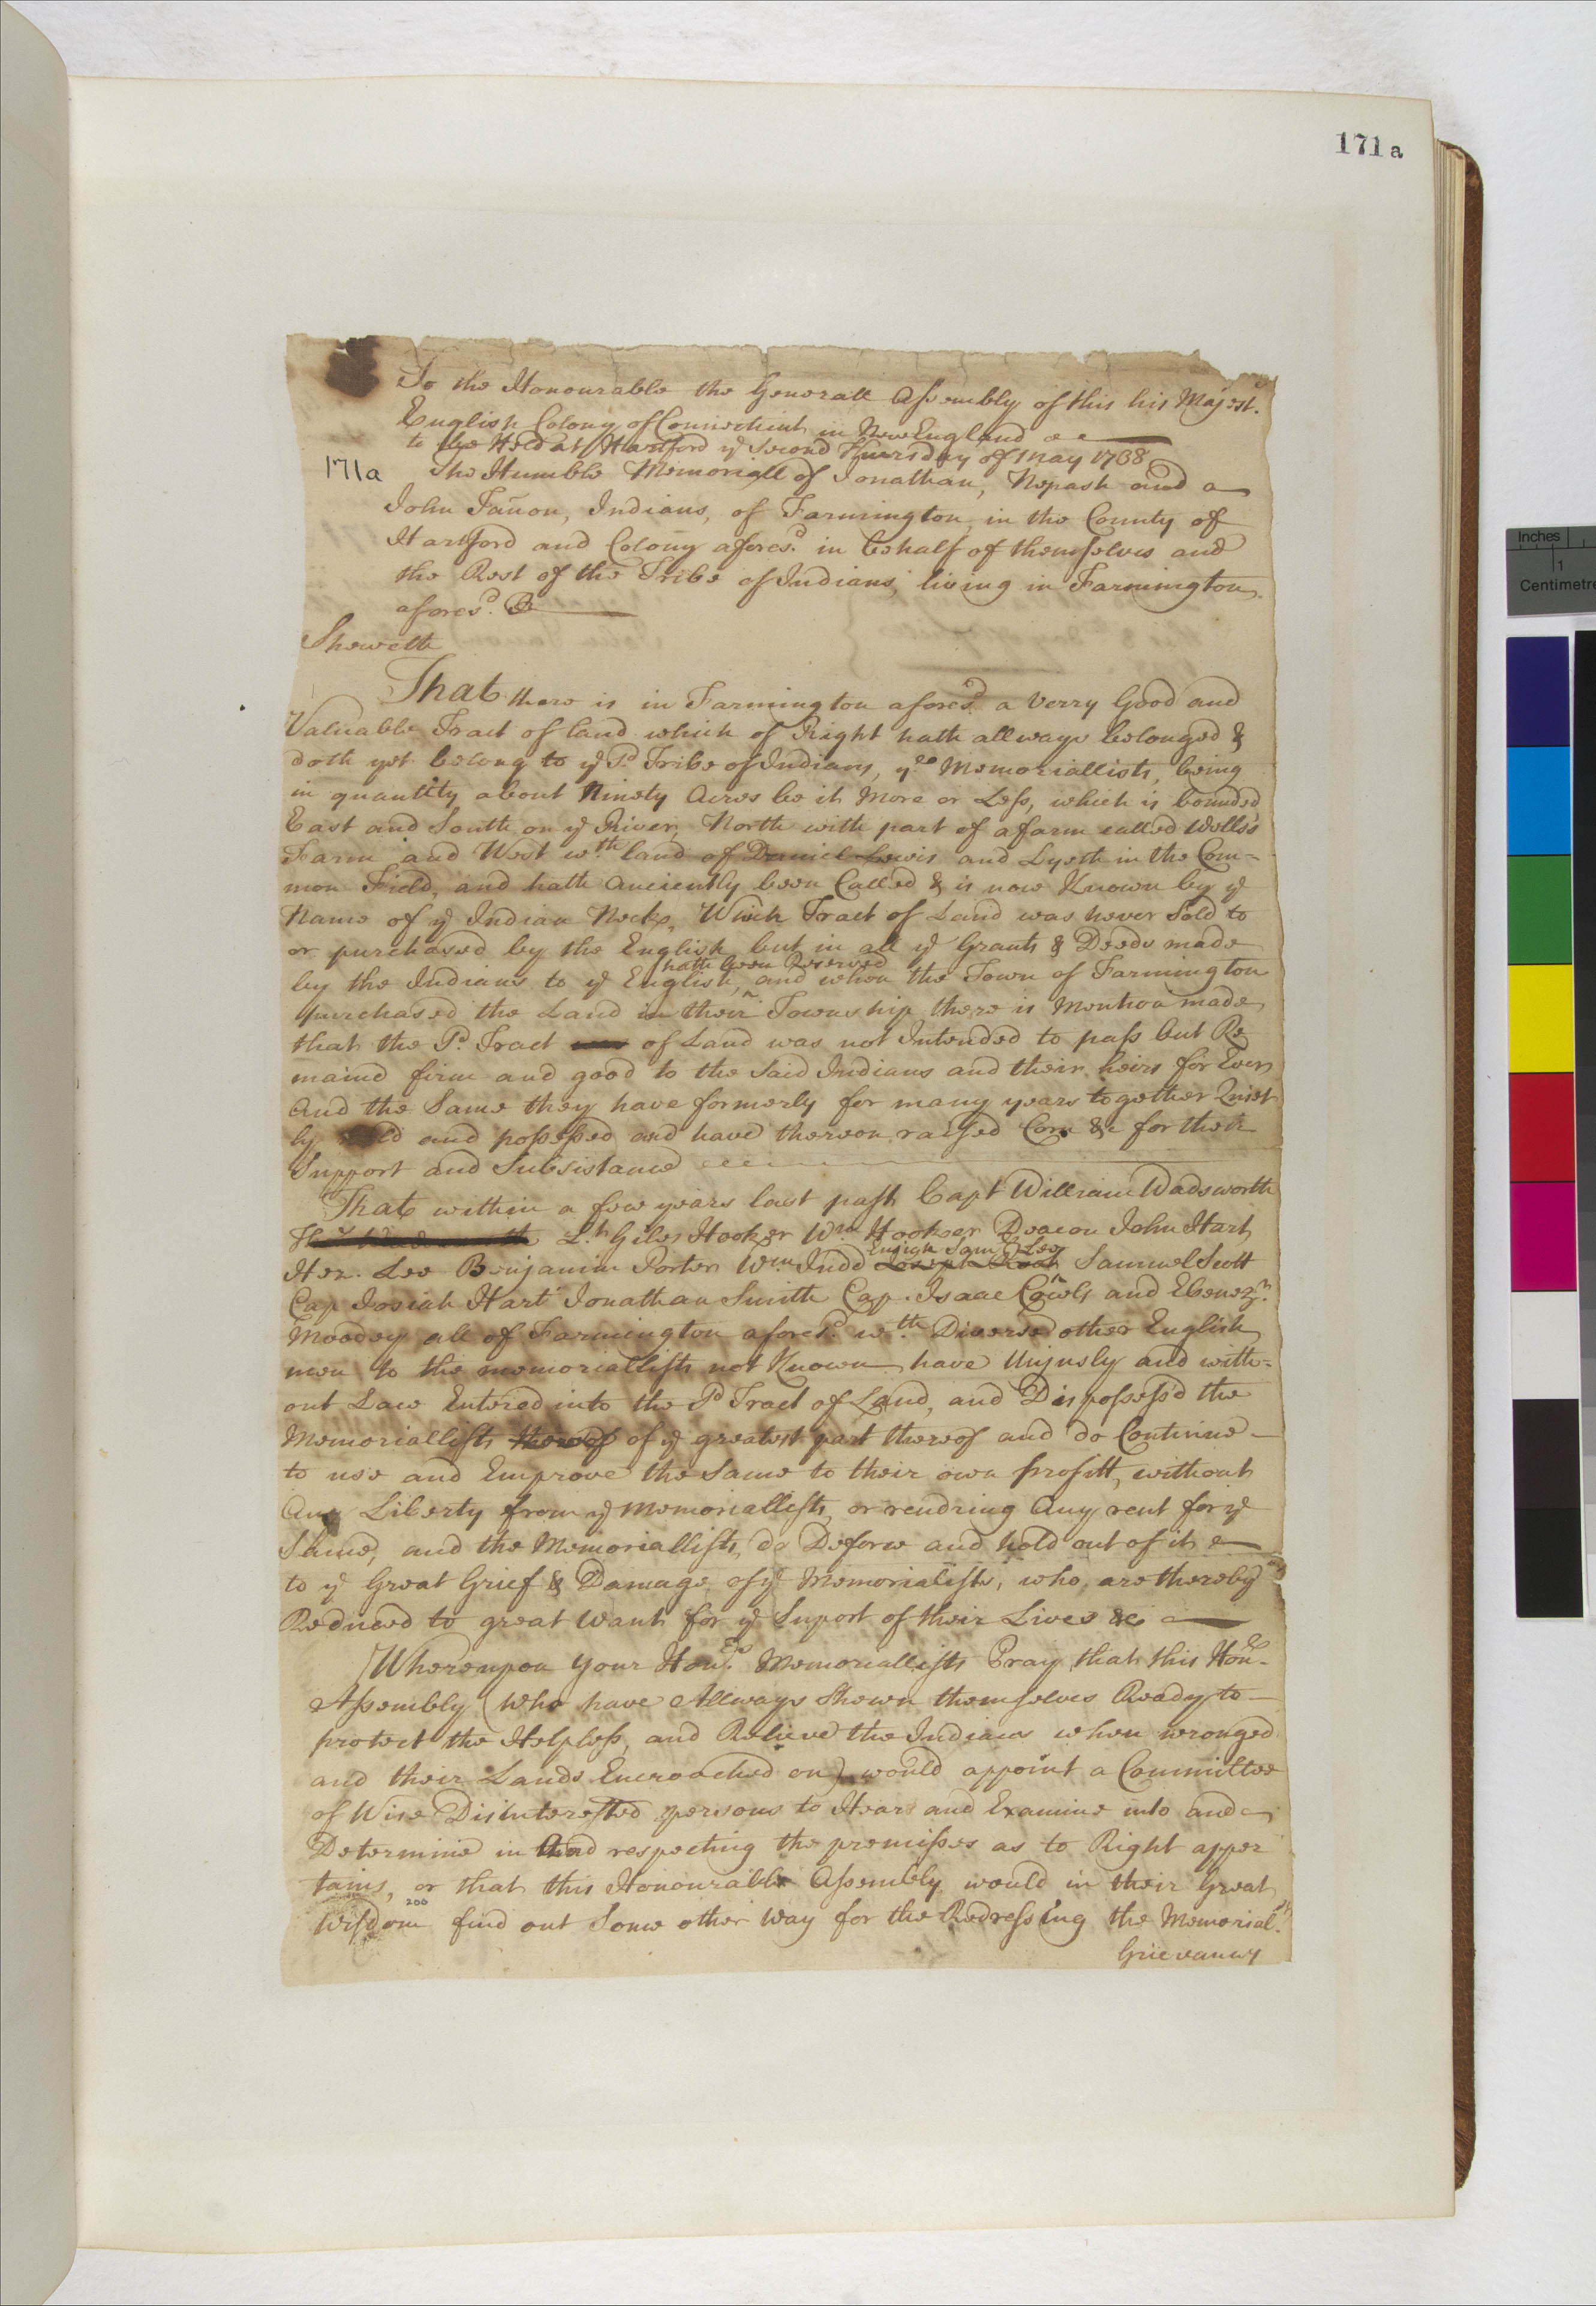 171a
To the Honourable the Generall Assembly of this his Majest.s
English Colony of Connecticut in New England
to be Held at Hartford ye Second Thursday of May 1738
171a
The Humble Memoriall of Jonathan, Nepash and
John Tañon, Indians, of Farmington, in the County of
Hartford and Colony aforesd. in behalf of themselves and
the Rest of the Tribe of Indians, living in Farmington
aforesd.
Sheweth
That there is in Farmington aforesd. a Verry Good and
Valuable Tract of land which of Right hath allways belonged &
doth yet belong to ye Sd. Tribe of Indians, yeo Memoriallists, being
in quantity about Ninety Acres be it More or Less, which is bounded
East and South on ye River, North with part of a farm called Wells's
Farm and West wth. land of Daniel Lewis and Lyeth in the Com=
mon Field, and hath Anciently been Called & is now Known by ye
Name of ye Indian Neck, Which Tract of Land was never Sold to
or purchased by the English but in all ye Grants & Deeds made
hath been Reserved
by the Indians to ye English, and when the Town of Farmington
purchased the Land in their Township there is Mention made
that the Sd. Tract of Land was not Intended to pass but Re
maind firm and good to the Said Indians and their heirs for Ever
And the Same they have formerly for many years together Quiet
ly and possessed and have thereon raised Corn &c for their
Support and Subsistance
That within a few years last past Capt William Wadsworth
Lt. Giles Hooker Wm. Hooker Deacon John Hart
Ensign Sam.ll Lee
Hez. Lee Benjamin Porter Wm. Judd Joseph Root Samuel Scott
Cap Josiah Hart Jonathan Smith Cap. Isaac Cowls and Ebenezr.
Moodey all of Farmington aforesd. wth. Diverse other English
men to the memoriallists not Known have Unjusly and with=
out Law Entered into the Sd Tract of Land, and Disposess'd the
Memoriallists thereof of ye greatest part thereof and do Continue
to use and Emprove the Same to their own proffitt, without
Any Liberty from ye Memoriallists, or rendring Any rent for ye
Same, and the Memoriallists do Deforce and hold out of it
to ye Great Grief & Damage of ye Memorialists, who are thereby
Reduced to great Want for ye Suport of their Lives &c
Whereupon Your Memoriallists Pray that this Honble
Assembly (who have Allways Shewn themselves Ready to
protect the Helpless, and Relieve the Indians when wronged
and their Lands Encroached on) would appoint a Committee
of Wise Disinterested persons to Hear and Examine into and
Determine in And respecting the premisses as to Right apper
tains, or that this Honourable Assembly would in their Great
200
Wisdom find out Some other Way for the Redressing the Memorial.sts
Grievances